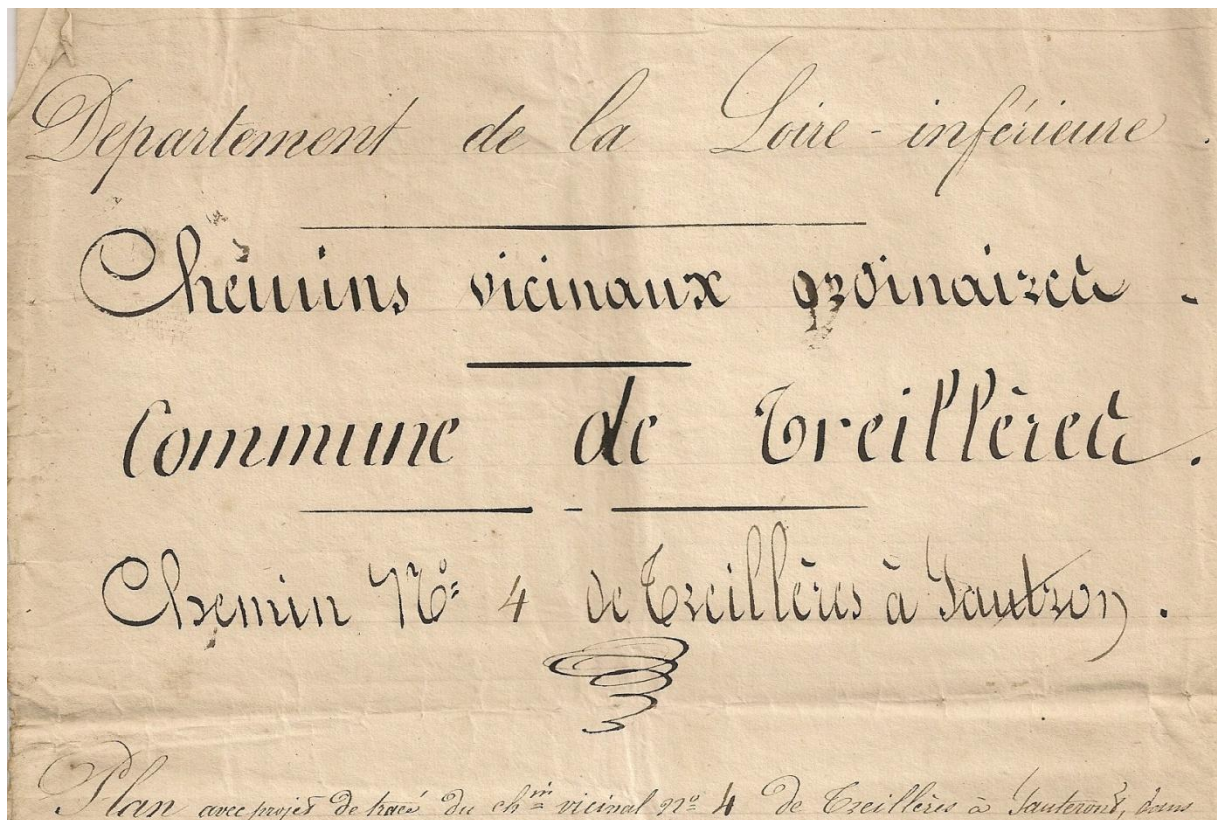 Departement de la Loire-inférieure.
Chemins vicinaux ordinaires.
Commune de Treillères.
Chemin N° 4 de Treillères à Sautron.
Plan avec projet de tracé du ch.in vicinal n° 4 de Treillères à Sauteront, dans